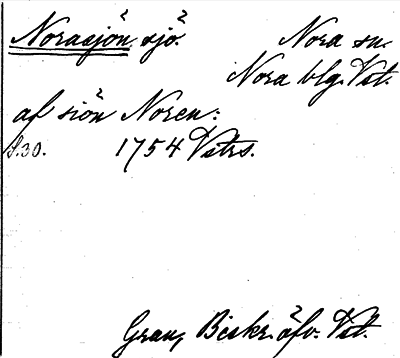 Norasjön sjö. Nora sn.
Nora blg. Vst.
af siön Noren:
S.30. 1754 Vstrs.
Grau, Beskr. öfv. Vst.